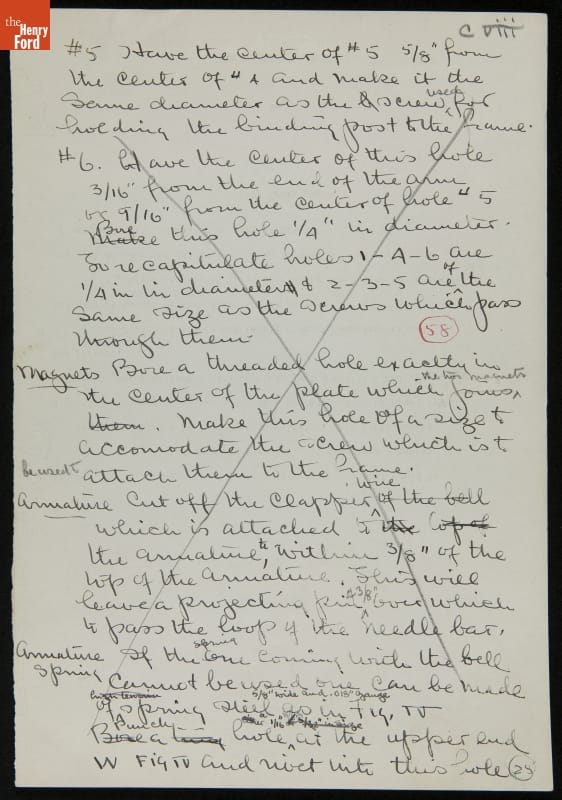 the
Henry
Ford
C viii
#5 Have the center of #5 5/8" from
the center of #4 and make it the
same diameter as the screw used for
holding the binding post to the frame.
#6. Have the center of this hole
3/16" from the end of the arm
or 9/16" from the center of hole #5
Bore
Make this hole 1/4" in diameter.
To recapitulate holes 1-4-6 are
1/4 in in diameter & 2-3-5 are of the
same size as the screws which pass
through them.
58
Magnets Bore a threaded hole exactly in
the center of the plate which joins the two magnets
them. Make this hole of a size to
accomodate the screw which is to
be used to attach them to the frame.
Armature Cut off the clapper wire of the bell
which is attached to the top of
the armature to within 3/8" of the
top of the armature. This will
leave a projecting pin 3/8" over which
to pass the loop of the needle bar.
Armature Spring If the spring one coming with the bell
cannot be used one can be made
high tension 5/8" wide and .018" gauge
of spring steel as in Fig. IV
Punch
Bore a hole at the upper end
W Fig IV and rivet into this hole
25